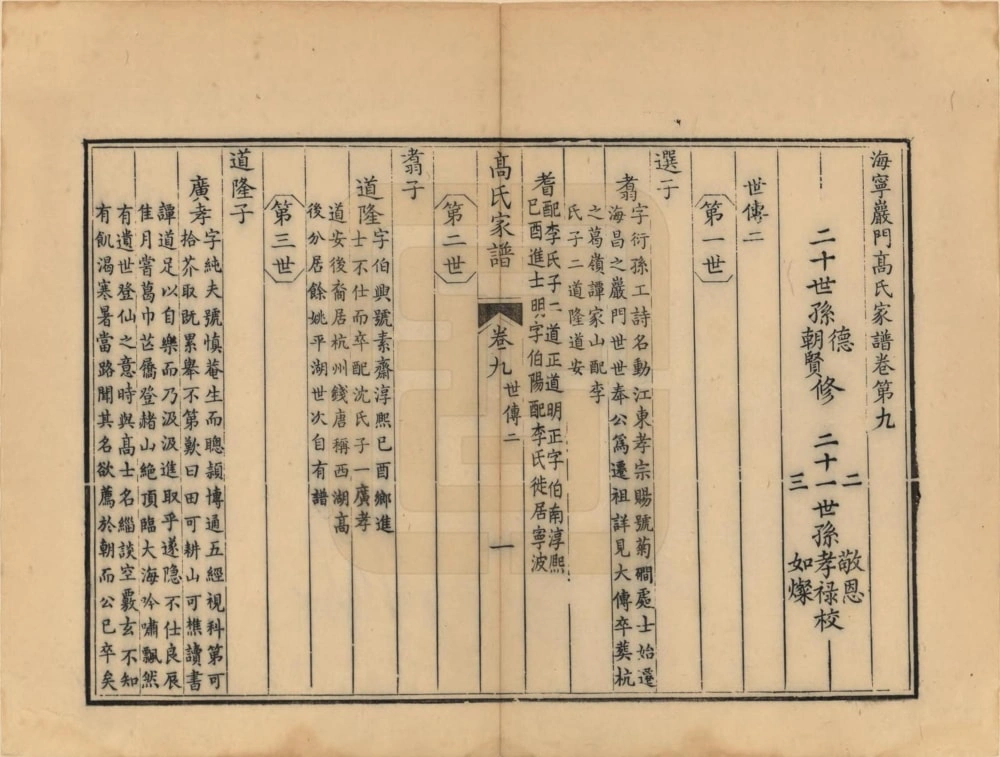 海寧巖門高氏家譜卷第九
二十世孫德朝賢修 二十一世孫敬恩孝祿如燦校
二
三
世傳二
第一世
選子
翥字衍孫工詩名動江東孝宗賜號菊磵處士始遷
海昌之巖門世世奉公爲遷祖詳見大傳卒葬杭
之葛嶺譚家山配李
氏子二道隆道安
耆配李氏子二道正道明正字伯南淳熙
已酉進士明字伯陽配李氏徙居寧波
高氏家譜 卷九 世傳二 一
第二世
翥子
道隆字伯興號素齋淳熙已酉鄉進
士不仕而卒配沈氏子一廣孝
道安後裔居杭州錢唐稱西湖高
後分居餘姚平湖世次自有譜
第三世
道隆子
廣孝字純夫號慎菴生而聰穎博通五經視科第可
拾芥取既累舉不第歎曰田可耕山可樵讀書
譚道足以自樂而乃汲汲進取乎遂隐不仕良辰
佳月嘗葛巾芒屩登赭山絶頂臨大海吟嘯飄然
有遺世登仙之意時與高士名緇談空覈玄不知
有飢渴寒暑當路聞其名欲薦於朝而公已卒矣